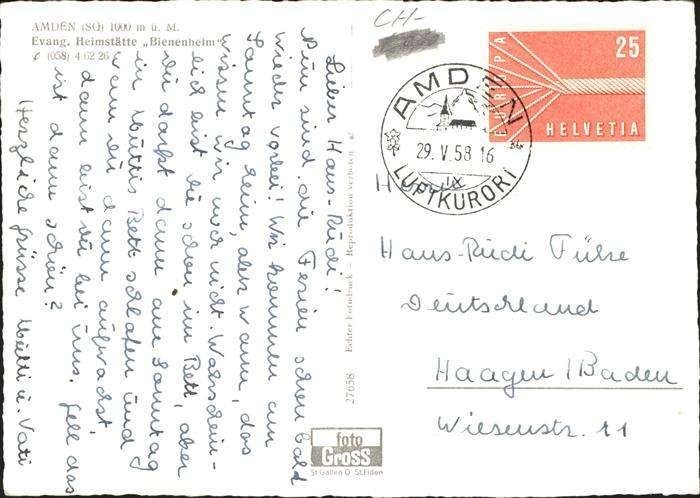 AMDEN (SG) 1000 m ü. M.
Evang. Heimstätte „Bienenheim"
(058) 4 62 26
Lieber Hans-Rudi!
Nun sind die Ferien schon bald
wieder vorbei! Wir kommen am
Sonntag heim, aber wann, das
wissen wir noch nicht. Wahrschein-
lich bist du schon im Bett, aber
du darfst dann am Sonntag
in Muttis Bett schlafen und
wenn du dann aufwachst,
dann bist du bei uns. Gell das
ist dann schön?
Herzliche Grüsse Mutti u. Vati
27658 Echter Fotodruck - Reproduktion verboten
foto
Gross
St Gallen O St. Fiden
CH-
EUROPA
25
HELVETIA
AMDEN
29. V. 58 16
LUFTKURORT
Hans-Rudi
Deutschland
Haagen / Baden
Wiesenstr. 11